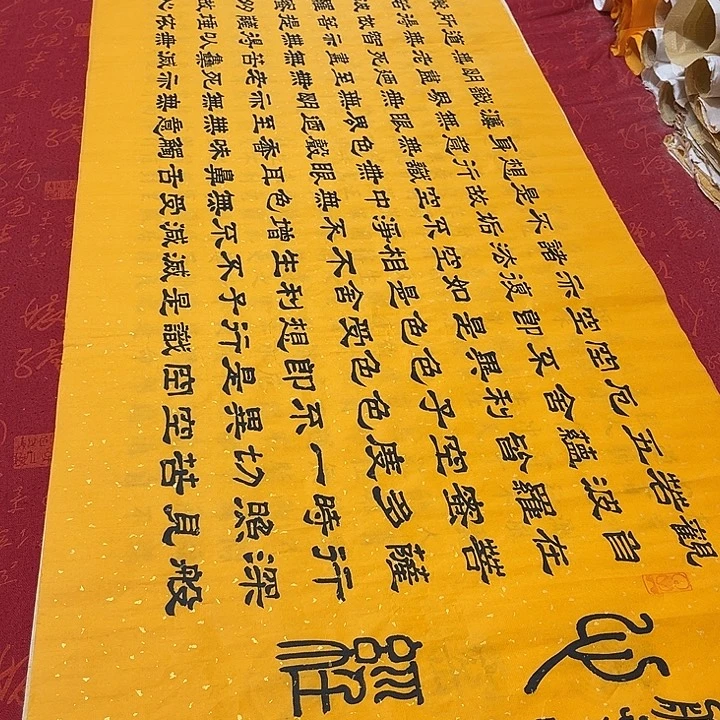 觀自在菩薩行深般
若波羅蜜多時照見
五蘊皆空度一切苦
厄舍利子色不異空
空不異色色即是空
空即是色受想行識
亦復如是舍利子是
諸法空相不生不滅
不垢不淨不增不減
是故空中無色無受
想行識無眼耳鼻舌
身意無色聲香味觸
法無眼界乃至無意
識界無無明亦無無
明盡乃至無老死亦
無老死盡無苦集滅
道無智亦無得以無
所得故菩提薩埵
心經